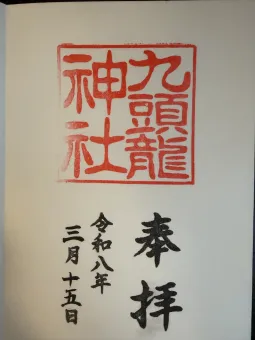 九頭龍
神社
奉拝
令和八年
三月十五日